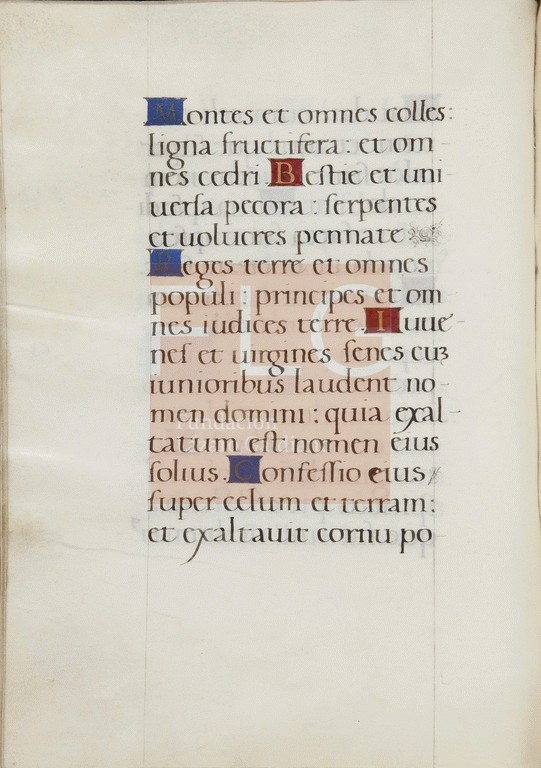 Montes et omnes colles:
ligna fructifera: et om-
nes cedri. Bestie et uni-
uersa pecora: serpentes
et uolucres pennate
Reges terre et omnes
populi: principes et om-
nes iudices terre. Iuue-
nes et uirgines senes cuʒ
iunioribus laudent no-
men domini: quia exal-
tatum est nomen eius
solius. Confessio eius
super celum et terram:
et exaltauit cornu po
FLG
Fundación